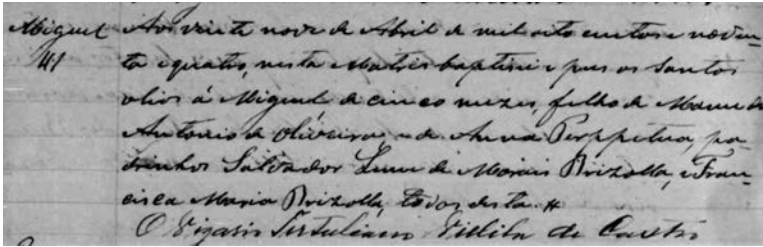 Miguel Aos vinte nove de Abril de mil oito centos e noven-
ta e quatro, nesta Matriz baptisei e pus os Santos
olios á Miguel de cinco mezes, filho de Manuel
Antonio de Oliveira e de Anna Perppetua, pa-
drinhos Salvador Leme de Morais Brizolla, e Fran-
cisca Maria Brizolla, todos desta.
O Vigario Tertuliano Villela de Castro